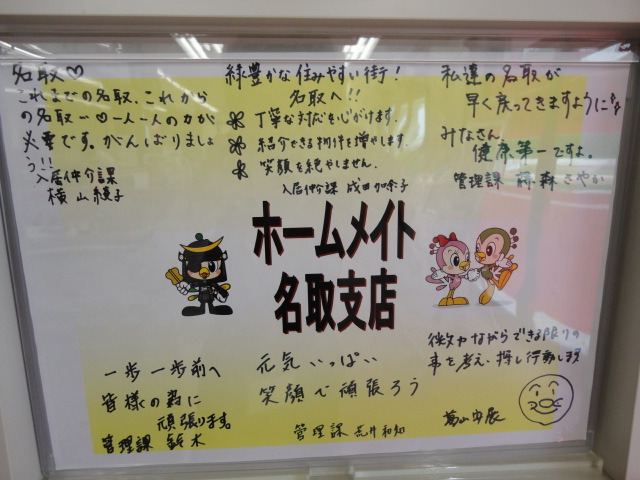 名取♡
これまでの名取、これから
の名取〜♡一人一人の力が
必要です。がんばりましょ
う!!
入居仲介課
横山綾子
緑豊かな住みやすい街!
名取へ!!
丁寧な対応を心がけます。
紹介できる物件を増やします。
笑顔を絶やしません。
入居仲介課 成田
私達の名取が
早く戻ってきますように
みなさん
健康第一ですよ。
管理課 藤森さやか
ホームメイト
名取支店
一歩一歩前へ
皆様の為に
頑張ります。
管理課 鈴木
元気いっぱい
笑顔で頑張ろう
管理課 荒井和知
微力ながらできる限りの
事を考え、探し行動します